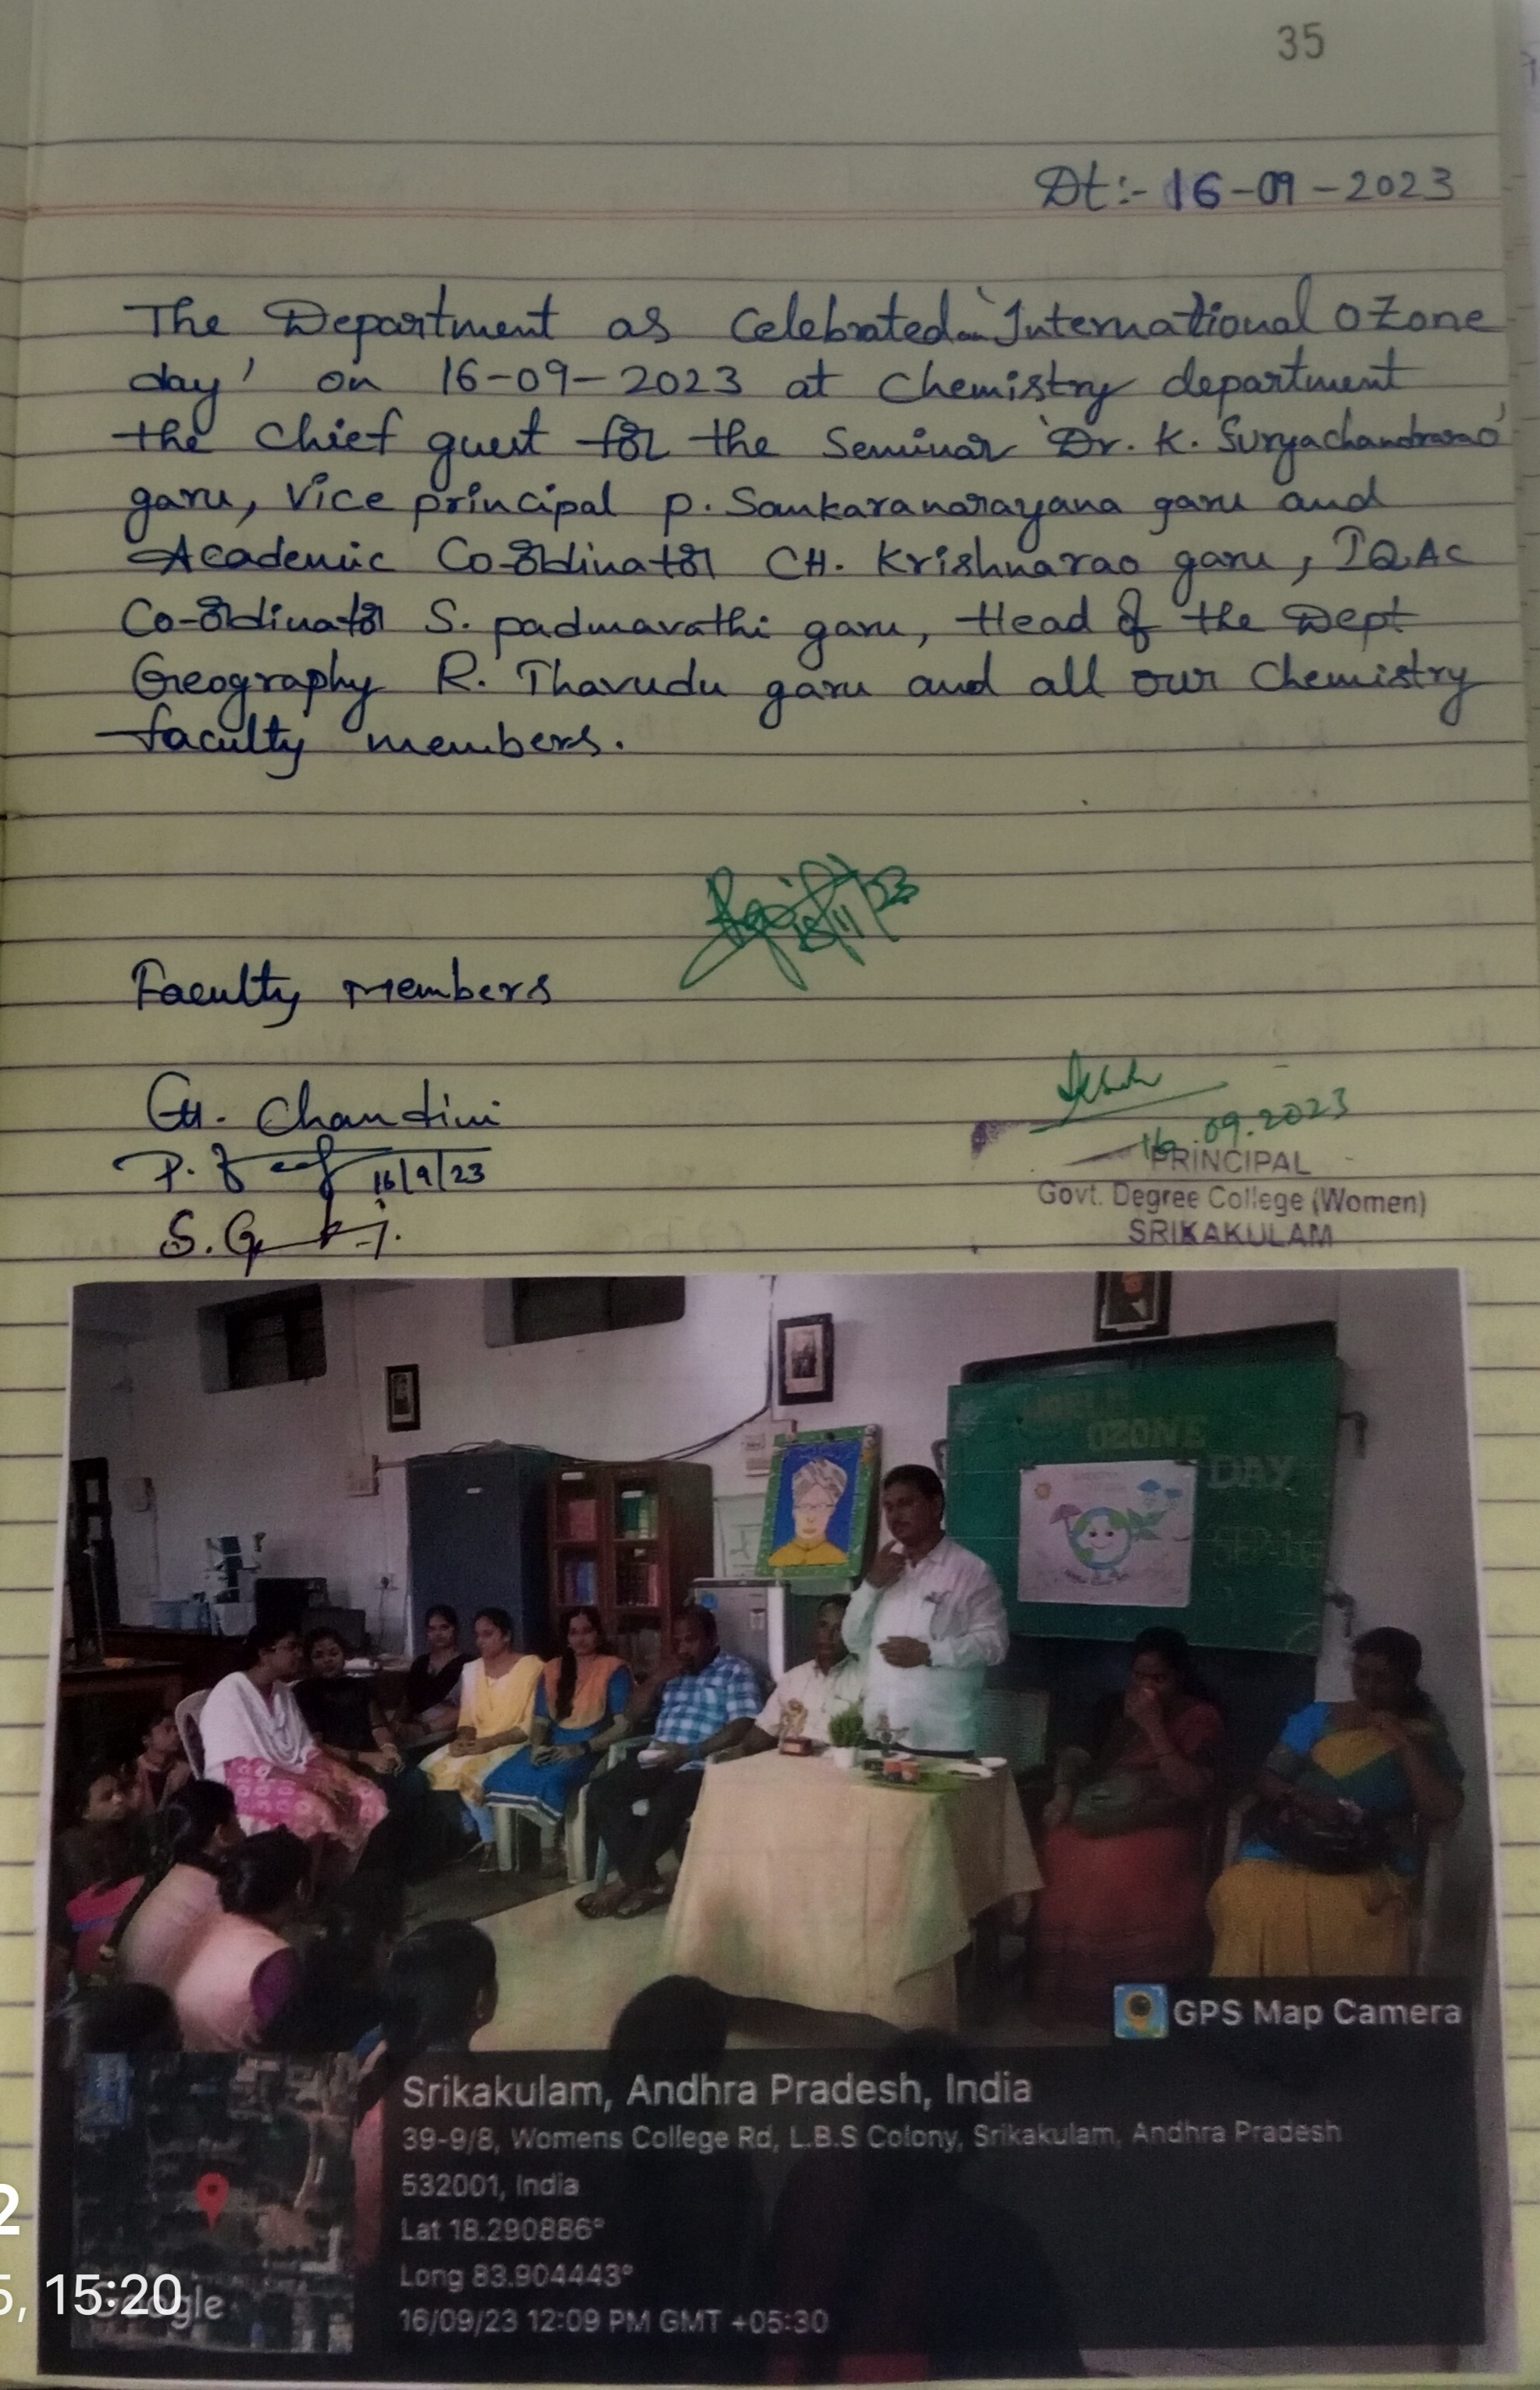 35
Dt:- 16-09-2023
The Department as Celebrated 'International Ozone
day' on 16-09-2023 at Chemistry department
the Chief guest for the Seminar 'Dr. K. Suryachandrarao'
garu, Vice principal P. Sankaranarayana garu and
Academic Co-ordinator CH. Krishnarao garu, IQAC
Co-ordinator S. padmavathi garu, Head of the Dept
Geography R. Thavudu garu and all our Chemistry
faculty members.
Faculty Members
CH. Chandini
P. 16/9/23
S.
16.09.2023
PRINCIPAL
Govt. Degree College (Women)
SRIKAKULAM
WORLD
OZONE
DAY
SEP-16
GPS Map Camera
Srikakulam, Andhra Pradesh, India
39-9/8, Womens College Rd, L.B.S Colony, Srikakulam, Andhra Pradesh
532001, India
Lat 18.290886°
Long 83.904443°
16/09/23 12:09 PM GMT +05:30
Google
2
5, 15:20